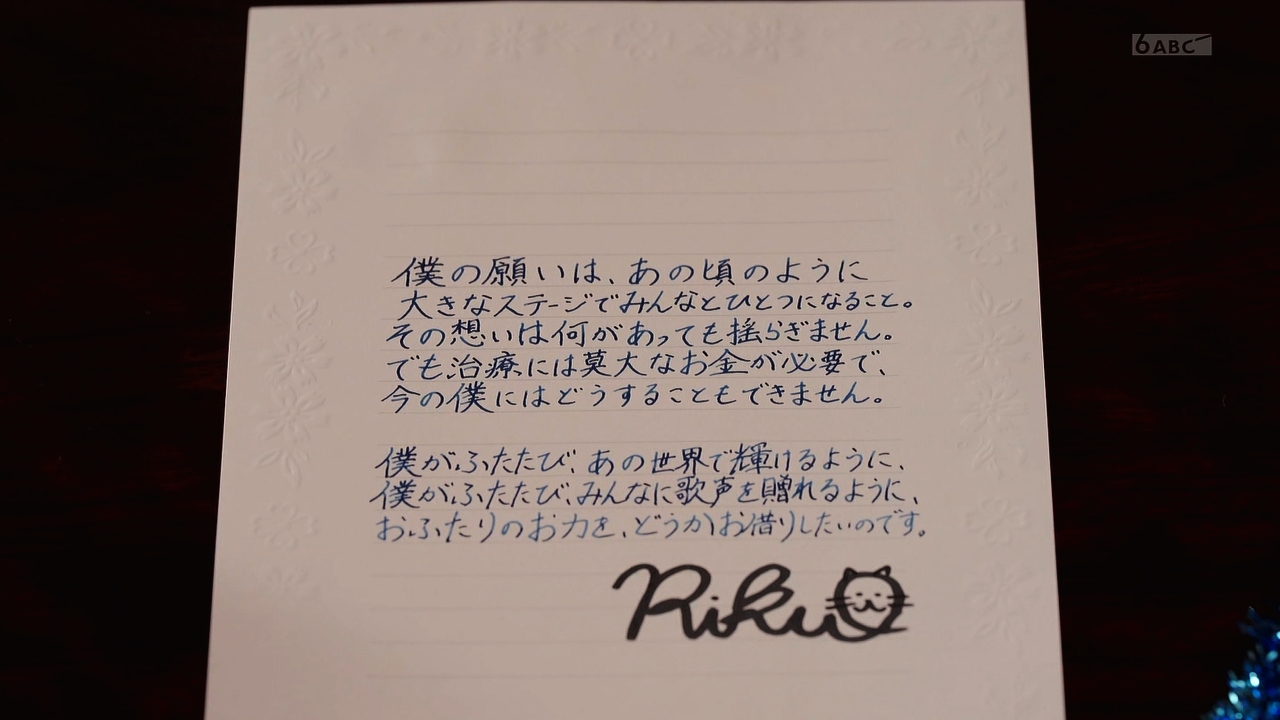 6ABC
僕の願いは、あの頃のように
大きなステージでみんなとひとつになること。
その想いは何があっても揺らぎません。
でも治療には莫大なお金が必要で、
今の僕にはどうすることもできません。
僕がふたたび、あの世界で輝けるように、
僕がふたたび、みんなに歌声を贈れるように、
おふたりのお力を、どうかお借りしたいのです。
Riku